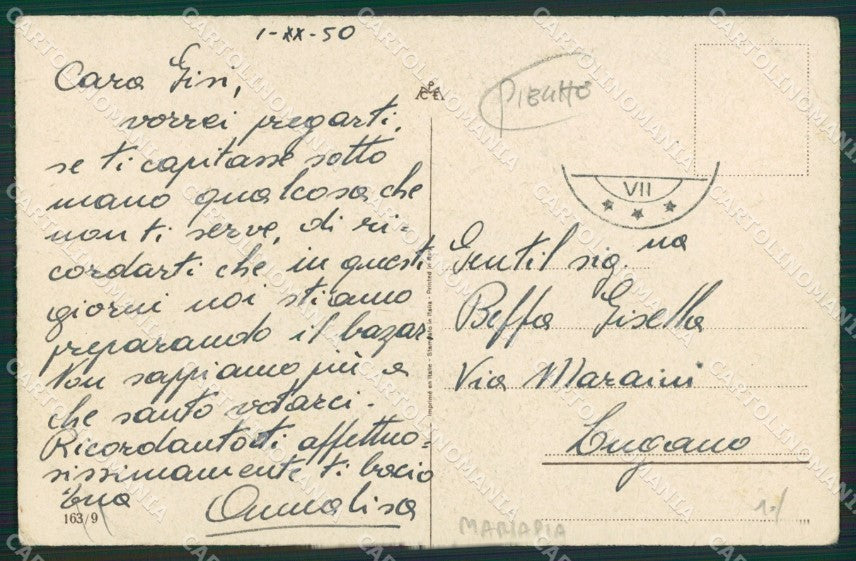 1-XX-50
Cara Gisi,
vorrei pregarti,
se ti capitasse sotto
mano qualcosa che
non ti serve, di ri-
cordarti che in questi
giorni noi stiamo
preparando il bazar
Non sappiamo più a
che santo votarci.
Ricordandoti affettuo=
sissimamente ti bacio
tua
Annalisa
163/9
PIEGHE
VII
Gentil sig.na
Beffa Gisella
Via Maraini
Lugano
MARIAPIA
Imprimé en Italie - Stampato in Italia - Printed in
CARTOLINOMANIA